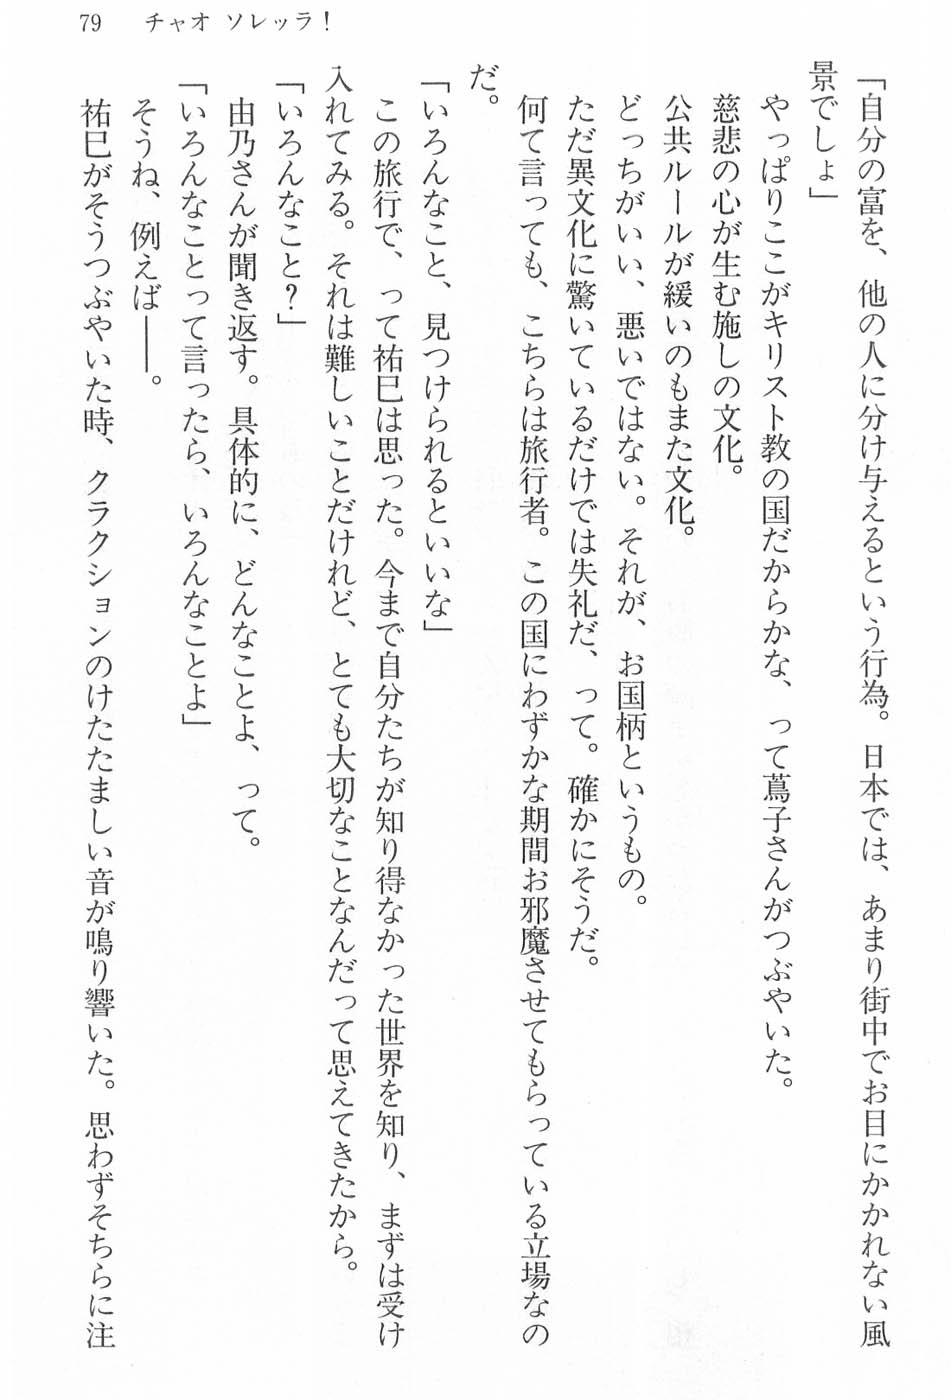 79　チャオ ソレッラ！
「自分の富を、他の人に分け与えるという行為。日本では、あまり街中でお目にかかれない風
景でしょ」
　やっぱりここがキリスト教の国だからかな、って蔦子さんがつぶやいた。
　慈悲の心が生む施しの文化。
　公共ルールが緩いのもまた文化。
　どっちがいい、悪いではない。それが、お国柄というもの。
　ただ異文化に驚いているだけでは失礼だ、って。確かにそうだ。
　何て言っても、こちらは旅行者。この国にわずかな期間お邪魔させてもらっている立場なの
だ。
「いろんなこと、見つけられるといいな」
　この旅行で、って祐巳は思った。今まで自分たちが知り得なかった世界を知り、まずは受け
入れてみる。それは難しいことだけれど、とても大切なことなんだって思えてきたから。
「いろんなこと？」
　由乃さんが聞き返す。具体的に、どんなことよ、って。
「いろんなことって言ったら、いろんなことよ」
　そうね、例えば――。
　祐巳がそうつぶやいた時、クラクションのけたたましい音が鳴り響いた。思わずそちらに注